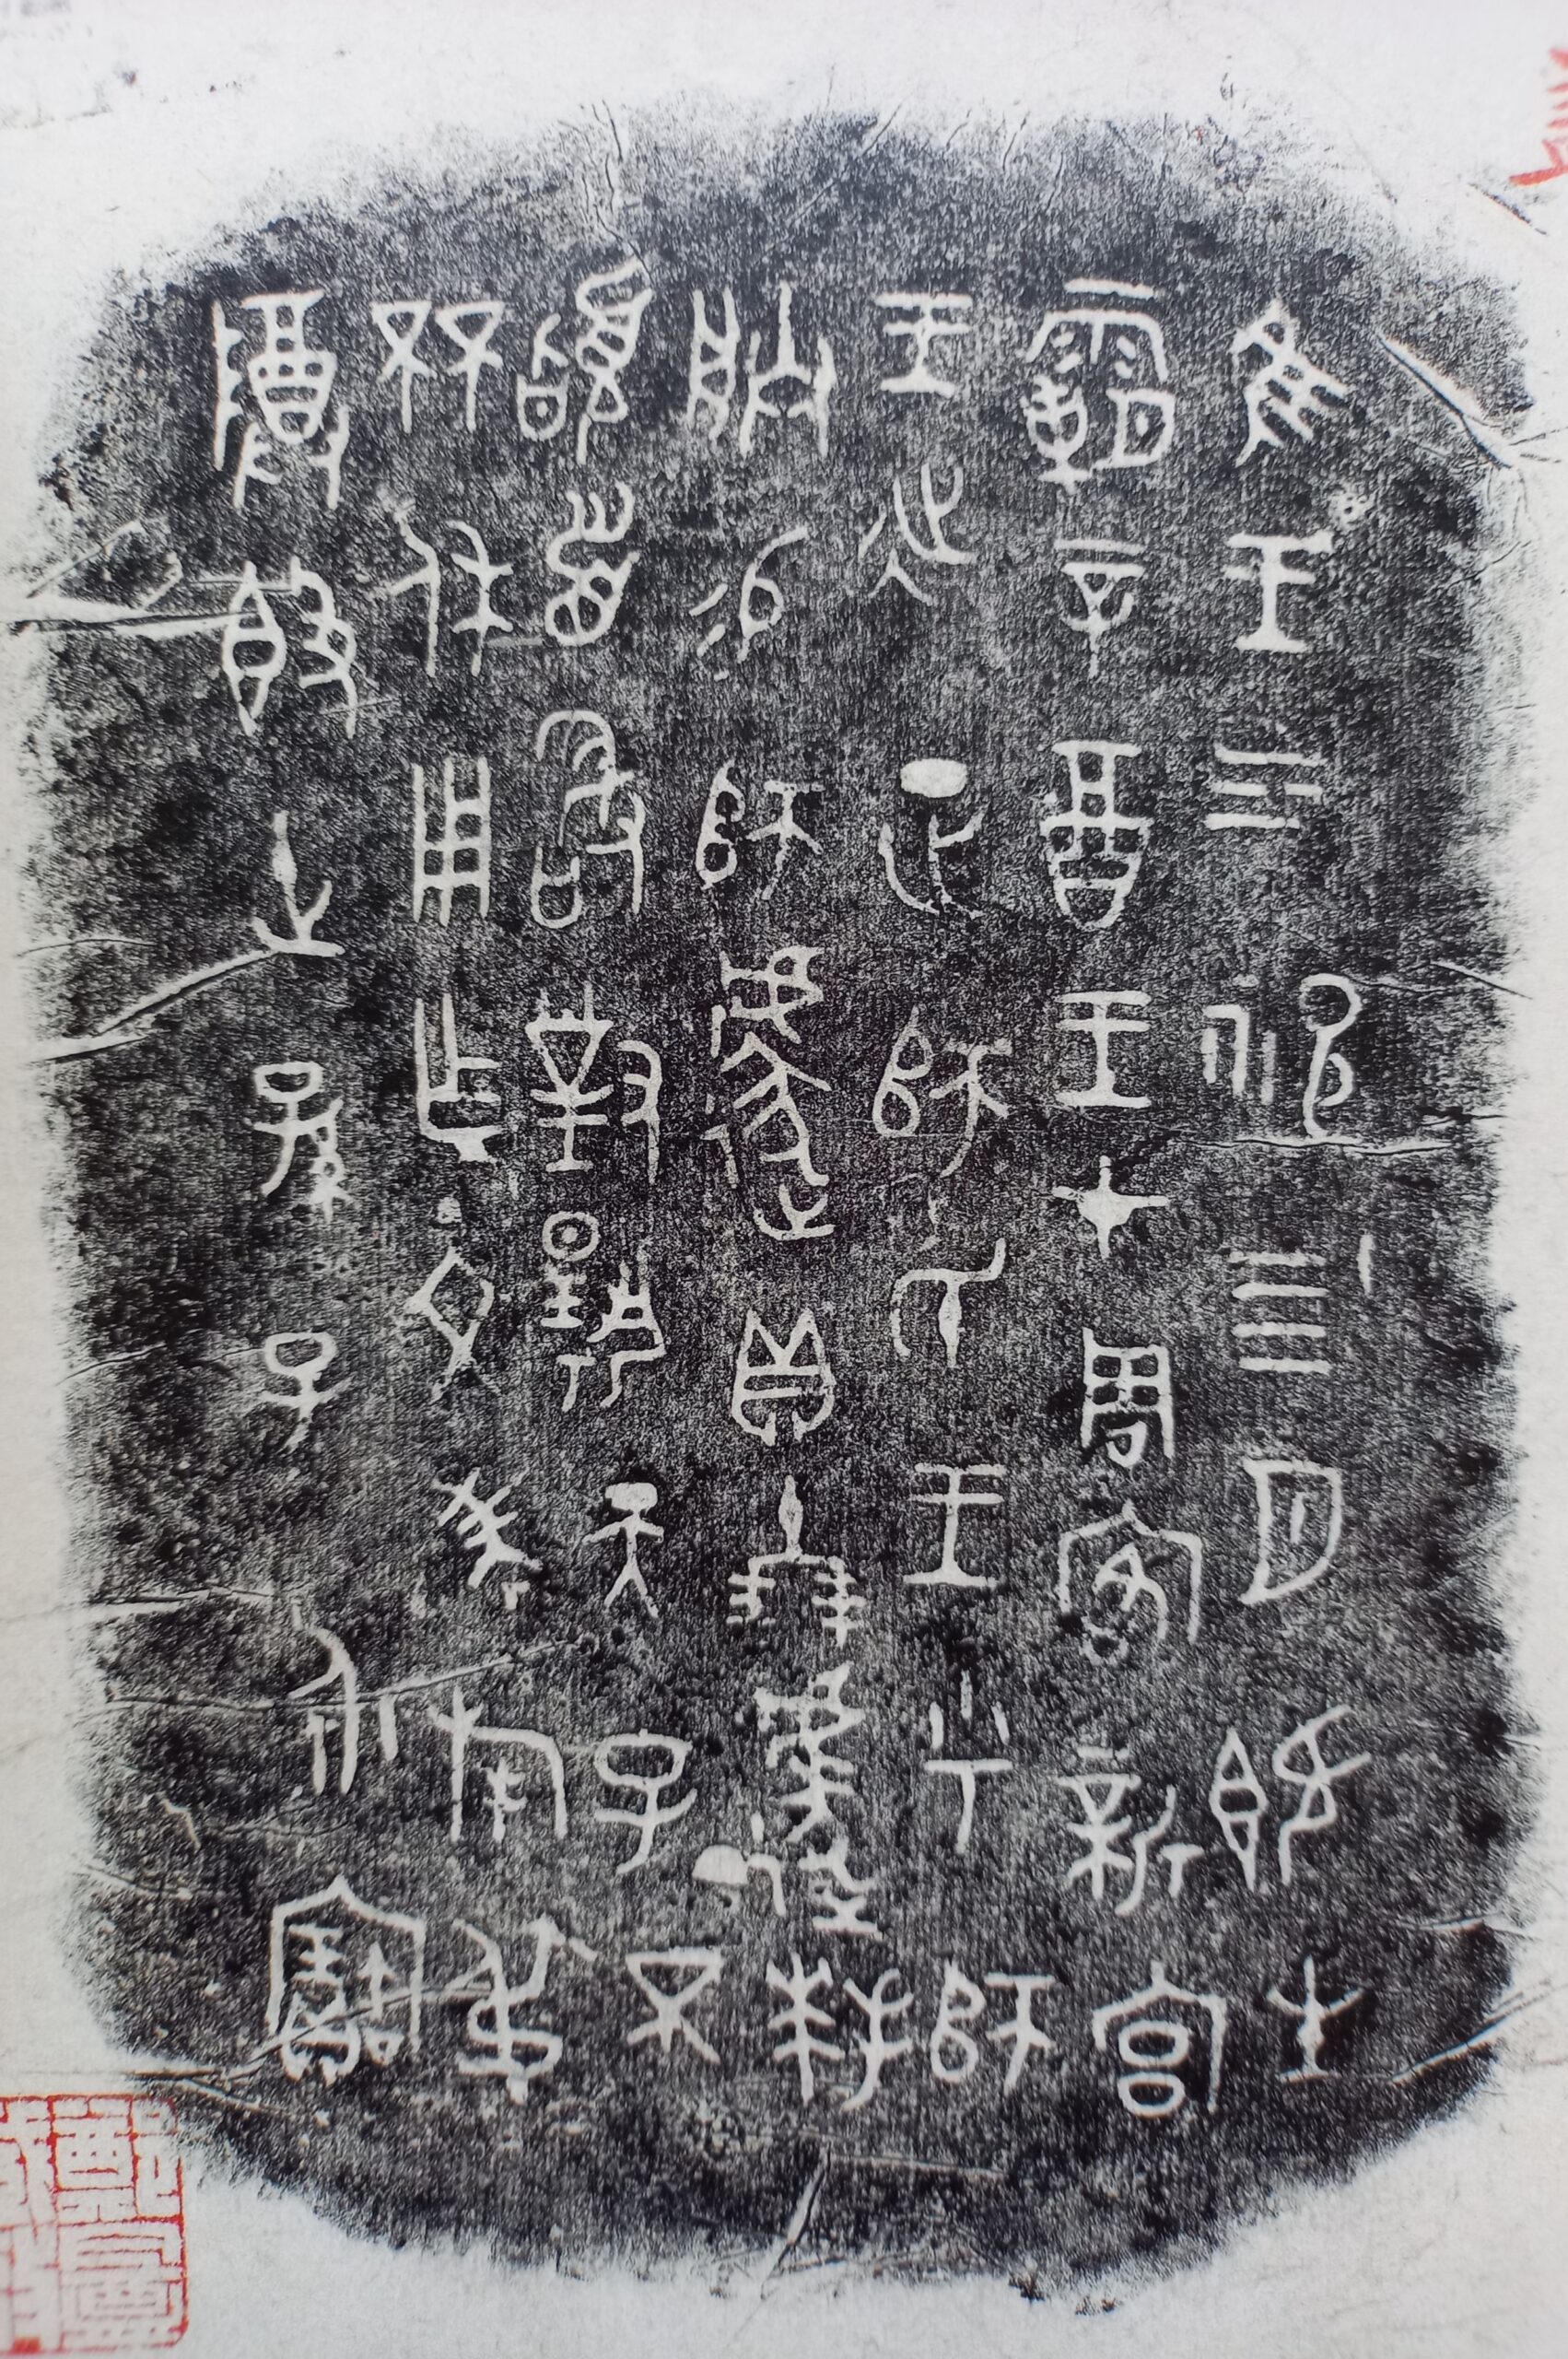 隹王三祀四月既生
霸辛酉王才周客新宮
王𢓊正師氏王乎師
朕易師遽貝十朋遽拜
𩒨首敢對揚天子不
𠀠休用乍文考旄叔
𬯚𣪘世孫子永寶